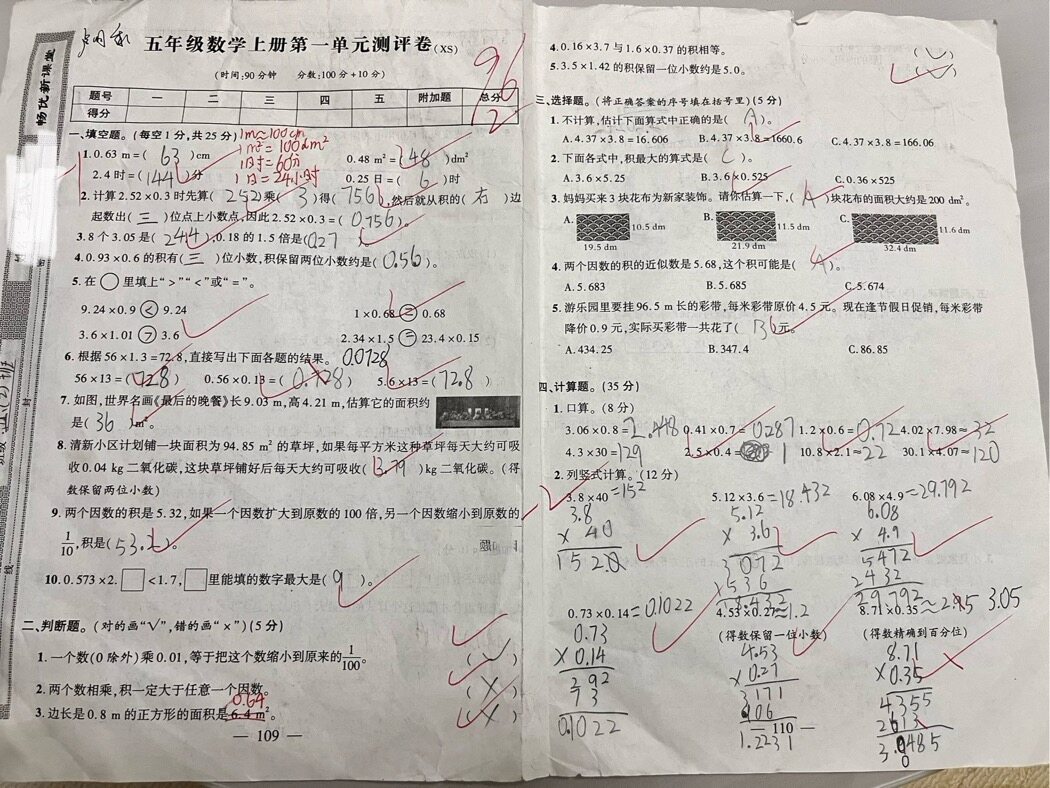 畅优新课堂
五年级数学上册第一单元测评卷(XS)
96
(时间:90分钟 分数:100分+10分)
题号 一 二 三 四 五 附加题 总分
得分
12
一、填空题。(每空1分,共25分)
1m=100cm
1m²=100dm²
1时=60分
1日=24小时
1.0.63 m=( 63 )cm 0.48 m²=( 48 )dm²
2.4时=( 144 )分 0.25日=( 6 )时
2.计算2.52×0.3时先算( 252 )乘( 3 )得( 756 ),然后就从积的( 右 )边
起数出( 三 )位点上小数点,因此2.52×0.3=( 0.756 )。
3.8个3.05是( 24.4 ),0.18的1.5倍是( 0.27 )
4.0.93×0.6的积有( 三 )位小数,积保留两位小数约是( 0.56 )。
5.在○里填上“>”“<”或“=”。
9.24×0.9 < 9.24 1×0.68 = 0.68
3.6×1.01 > 3.6 2.34×1.5 = 23.4×0.15
6.根据56×1.3=72.8,直接写出下面各题的结果。 0.0728
56×13=( 728 ) 0.56×0.13=( 0.728 ) 5.6×13=( 72.8 )
7.如图,世界名画《最后的晚餐》长9.03 m,高4.21 m,估算它的面积约
是( 36 )m²。
8.清新小区计划铺一块面积为94.85 m²的草坪,如果每平方米这种草坪每天大约可吸
收0.04 kg二氧化碳,这块草坪铺好后每天大约可吸收( 3.79 )kg二氧化碳。(得
数保留两位小数)
9.两个因数的积是5.32,如果一个因数扩大到原数的100倍,另一个因数缩小到原数的
1/10,积是( 53.2 )。
10.0.573×2.□<1.7,□里能填的数字最大是( 9 )。
二、判断题。(对的画“√”,错的画“×”)(5分)
1.一个数(0除外)乘0.01,等于把这个数缩小到原来的1/100。 ( √ )
2.两个数相乘,积一定大于任意一个因数。 ( × )
0.64
3.边长是0.8 m的正方形的面积是6.4 m²。 ( × )
— 109 —
4.0.16×3.7与1.6×0.37的积相等。 ( √ )
5.3.5×1.42的积保留一位小数约是5.0。 ( √ )
三、选择题。(将正确答案的序号填在括号里)(5分)
1.不计算,估计下面算式中正确的是( A )。
A.4.37×3.8=16.606 B.4.37×3.8=1660.6 C.4.37×3.8=166.06
2.下面各式中,积最大的算式是( C )。
A.3.6×5.25 B.3.6×0.525 C.0.36×525
3.妈妈买来3块花布为新家装饰。请你估算一下,( A )块花布的面积大约是200 dm²。
A. 10.5 dm B. 11.5 dm C. 11.6 dm
19.5 dm 21.9 dm 32.4 dm
4.两个因数的积的近似数是5.68,这个积可能是( A )。
A.5.683 B.5.685 C.5.674
5.游乐园里要挂96.5 m长的彩带,每米彩带原价4.5元。现在逢节假日促销,每米彩带
降价0.9元,实际买彩带一共花了( B )元。
A.434.25 B.347.4 C.86.85
四、计算题。(35分)
1.口算。(8分)
3.06×0.8=2.448 0.41×0.7=0.287 1.2×0.6=0.72 4.02×7.98≈32
4.3×30=129 2.5×0.4=1 10.8×2.1≈22 30.1×4.07≈120
2.列竖式计算。(12分)
3.8×40=152 5.12×3.6=18.432 6.08×4.9=29.792
3.8 5.12 6.08
× 40 × 3.6 × 4.9
152.0 3072 5472
1536 2432
18.432 29.792
0.73×0.14=0.1022 4.53×0.27≈1.2 8.71×0.35≈2.95 3.05
(得数保留一位小数) (得数精确到百分位)
0.73 4.53 8.71
×0.14 ×0.27 ×0.35
292 3171 4355
73 906 2613
0.1022 1.2231 3.0485
— 110 —